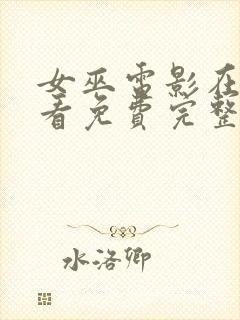 女巫雷影在
看免费完整
水洛卿